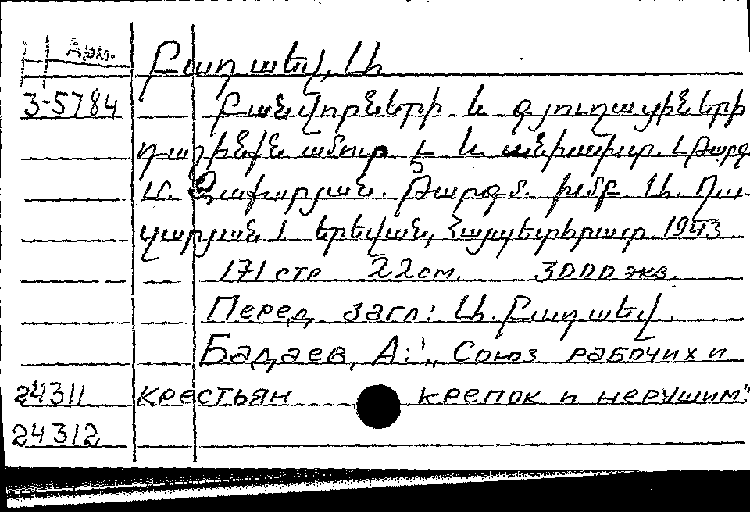 Арм.
Բադաև, Ա.
3-5784 Բանվորների և գյուղացիների
դաշինքն ամուր է և անխախտ. (Թարգ
Մ. Զաքարյան. Թարգմ. խմբ. Ա. Ղա
զարյան). Երևան, Հայպետհրատ 1943
171 стр 22 см. 3000 экз.
Перед загл: Ա. Բադաև.
Бадаев, А.: „Союз рабочих и
24311 крестьян крепок и нерушим"
24312